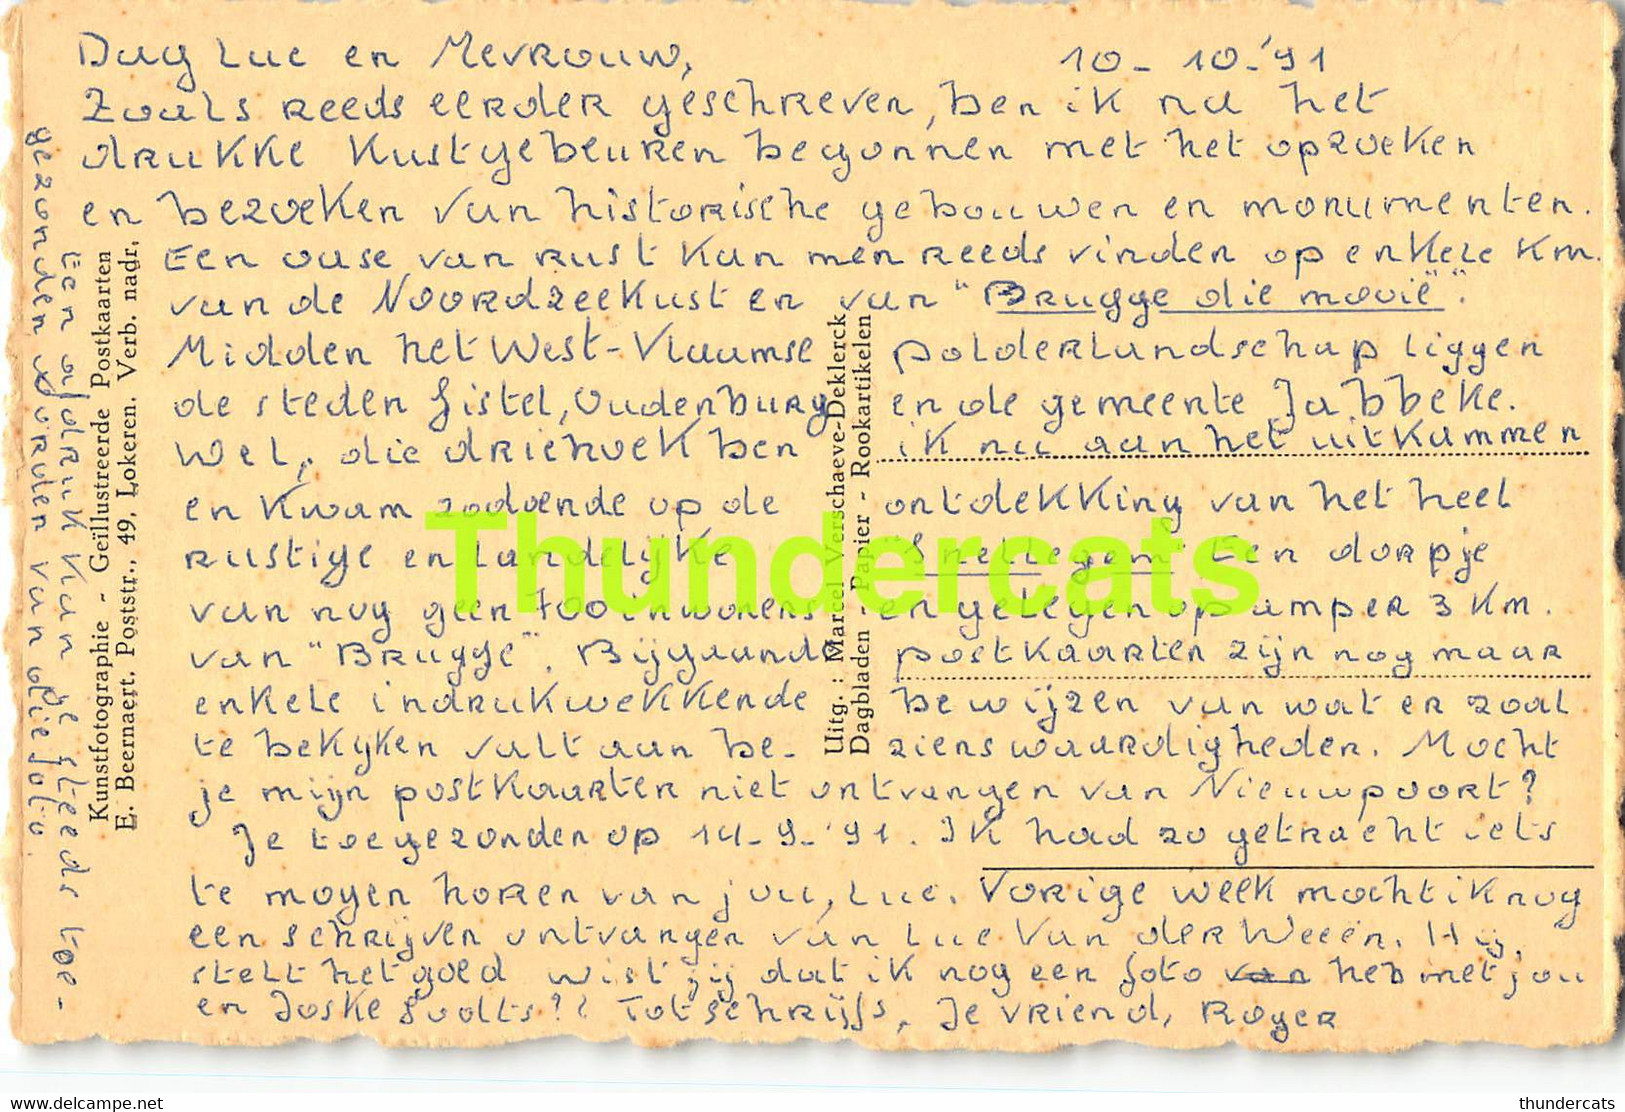 Dag Luc en Mevrouw,
10-10-'91
Zoals reeds eerder geschreven, ben ik na het
drukke Kustgebeuren begonnen met het opzoeken
en bezoeken van historische gebouwen en monumenten.
Een oase van rust kan men reeds vinden op enkele km.
van de Noordzeekust en van "Brugge die mooië".
Midden het West-Vlaamse polderlandschap liggen
de steden Gistel, Oudenburg en de gemeente Jabbeke.
Wel, die driehoek ben ik nu aan het uitkammen
en kwam zodoende op de ontdekking van het heel
rustige en landelijke "Snellegem" Een dorpje
van nog geen 700 inwoners en gelegen op amper 3 km.
van "Brugge". Bijgaande postkaarten zijn nog maar
enkele indrukwekkende bewijzen van wat er zoal
te bekijken valt aan be-zienswaardigheden. Mocht
je mijn postkaarten niet ontvangen van Nieuwpoort?
Je toegezonden op 14-9-'91. Ik had zo getracht iets
te mogen horen van jou, Luc. Vorige week mocht ik nog
een schrijven ontvangen van Luc Van der Weeën. Hij
stelt het goed wist jij dat ik nog een foto van heb met jou
en Joske Soolts?? Tot schrijfs, Je vriend, Roger
Een afdruk kan je steeds toe-
gezonden worden van die foto.
Kunstfotographie - Geillustreerde Postkaarten
E. Beernaert. Poststr., 49, Lokeren. Verb. nadr.
Uitg. : Marcel Verschaeve-Deklerck
Dagbladen - Papier - Rookartikelen
Thundercats
delcampe.net
thundercats